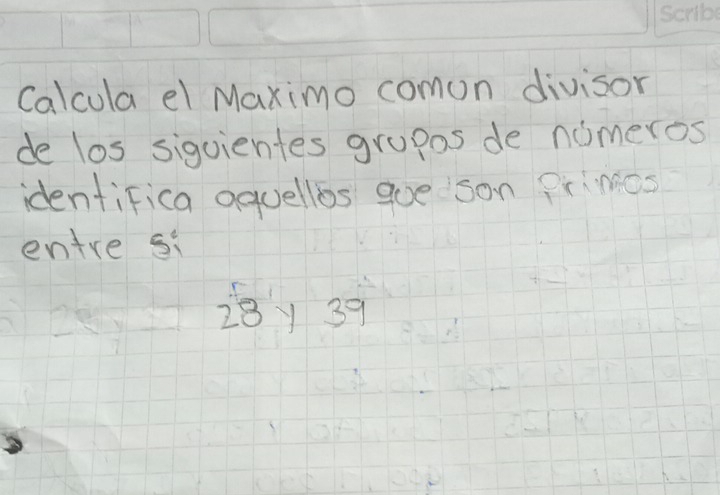 Scribe
Calcula el Maximo comun divisor
de los siguientes grupos de números
identifica aquellos que son Primos
entre si
28 y 39